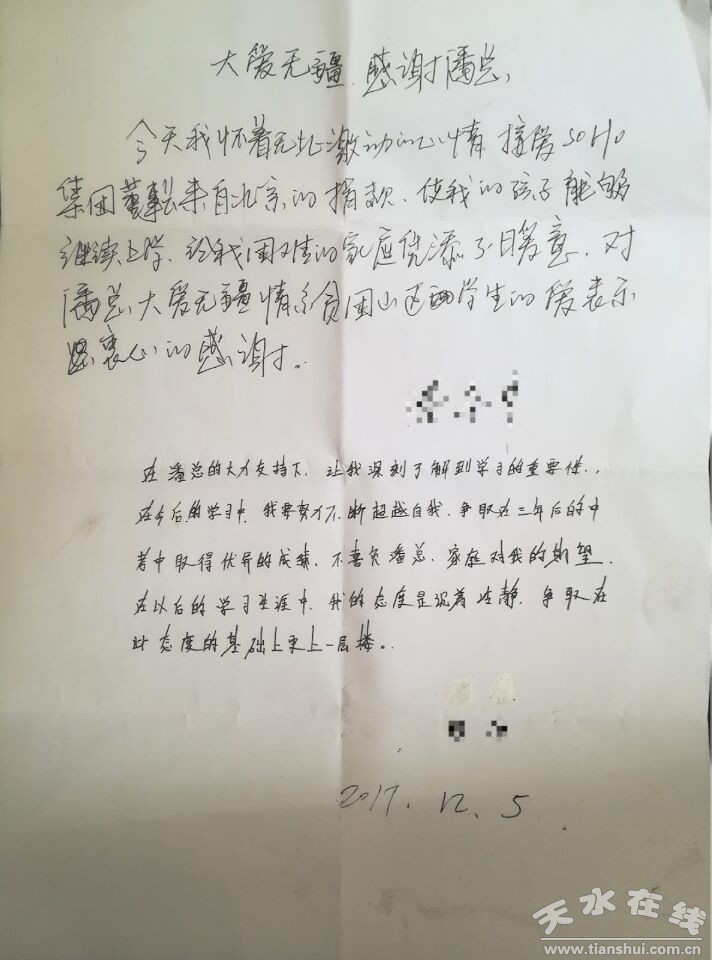 大爱无疆 感谢潘总、
今天我怀着无比激动的心情 接爱SOHO
集团董事长来自北京的捐款、使我的孩子能够
继续上学、给我困难的家庭凭添了一日暖意、对
潘总、大爱无疆情系贫困山区学生的爱表示
衷心的感谢。
在潘总的大力支持下、让我深刻了解到学习的重要性、
在今后的学习中、我要努力不断超越自我、争取在三年后的中
考中取得优异的成绩、不辜负潘总、家庭对我的期望
在以后的学习生涯中、我的态度是沉着冷静、争取在
此态度的基础上更上一层楼。
2017.12.5
天水在线
www.tianshui.com.cn